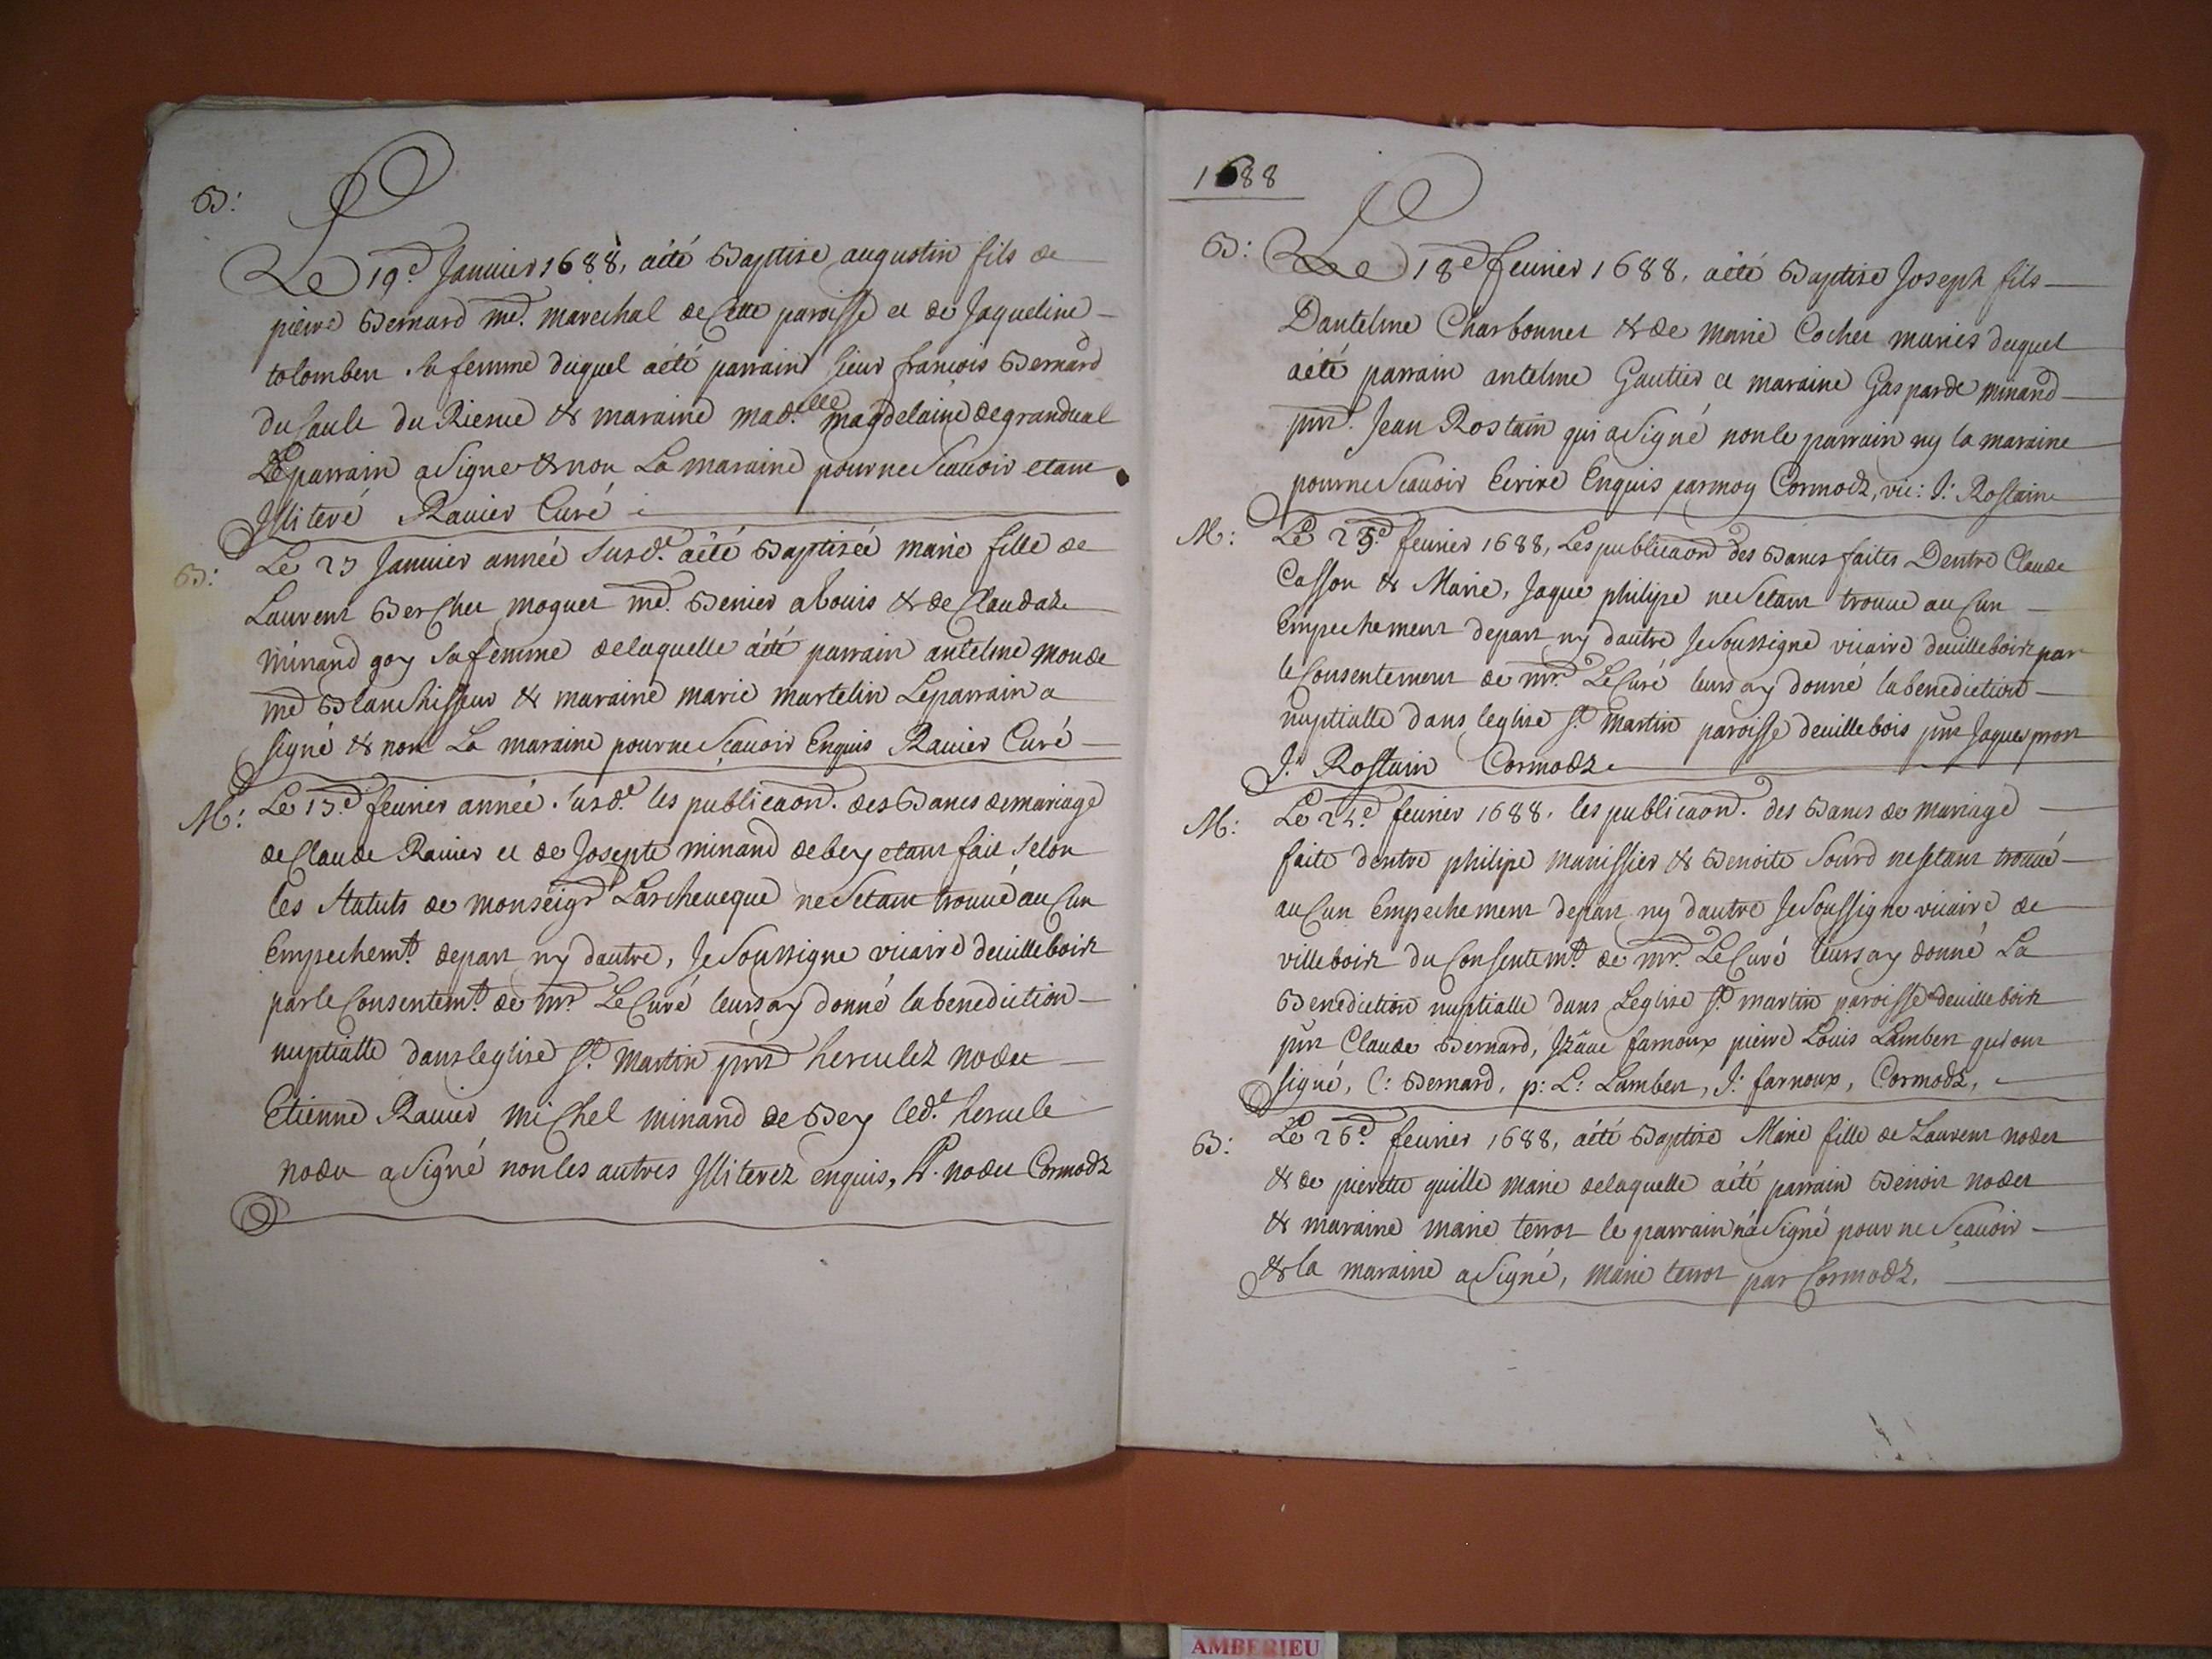 B:
Le 19.e Janvier 1688, aété Baptisé augustin fils de
pierre Bernard md. marechal de Cette paroisse et de Jaqueline
tolomber sa femme duquel aété parrain sieur francois Bernard
du saule du Rieme & maraine mad.elle magdelaine de grandual
Le parrain a Signe & non La maraine pour ne Scauoir etant
Illiteré Rauier Curé
B:
Le 23 Januier année Susd.e aété Baptiseé marie fille de
Laurent Bercher moguet md. Benier a bouis & de Claudaz
minand goy sa femme de laquelle aété parrain antelme monde
md Blanchisseur & maraine marie martelin Le parrain a
signé & non La maraine pour ne Scauoir Enquis Rauier Curé
M:
Le 13.e feurier année susd.e les publicaon. des Bancs de mariage
de Claude Rauier et de Josepte minand de bey etant fait Selon
les Statuts de monseigr Larcheueque ne Setant trouué au Cun
Empechemt. depart ny dautre, Je Soussigne vicaire deuilleboix
par le Consentemt. de mr. Le Curé leurs ay donné la benediction
nuptialle dans leglise St. Martin pnt herculez noder
Etienne Rauier miChel minand de Bey led.t hercule
noder a Signé non les autres Illiterez enquis, h. noder Cormodz
1688
B:
Le 18.e feurier 1688, aété Baptisé Joseph fils
Dantelme Charbonnet & de marie Cochet mariés duquel
aété parrain antelme Gautier et maraine Gasparde minand
pnt. Jean Rostain qui a Signé non le parrain ny la maraine
pour ne Scauoir Ecrire Enquis par moy Cormodz, vic: J: Rostain
M:
Le 23.e feurier 1688, Les publicaon des Bancs faites Dentre Claude
Casson & Marie, Jaque philipe ne Setant trouue au Cun
Empechement depart ny dautre Je Soussigne vicaire deuilleboix par
le Consentement de mr. Le Curé leurs ay donné la benediction
nuptialle dans leglise St. Martin paroisse deuillebois pnt Jaques pron
J.n Rostain Cormodz
M:
Le 24.e feurier 1688, les publicaon. des Bancs de mariage
faite dentre philipe munissier & Benoite Sourd ne setant trouué
au Cun Empechement depart ny dautre Je Soussigne vicaire de
villeboix du Consentemt. de mr. Le Curé leurs ay donné La
Benediction nuptialle dans Leglise St. martin paroisse deuilleboix
pnt Claude Bernard, Izaac farnoux pierre Louis Lambert qui ont
signé, C: Bernard, p: L: Lambert, J: farnoux, Cormodz,
B:
Le 26.e feurier 1688, aété Baptisé Marie fille de Laurent noder
& de pierette quille marie de laquelle aété parrain Benoit noder
& maraine marie terrot le parrain n'a Signé pour ne Scauoir
& la maraine a Signé, marie terrot par Cormodz,
AMBERIEU